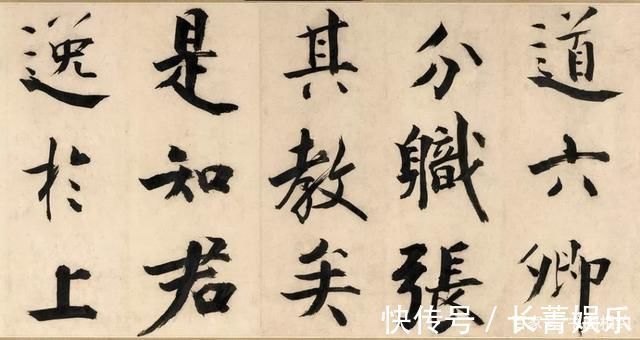 道六卿
分職張
其教矣
是知君
逸於上
快传号 / 长菁娱乐